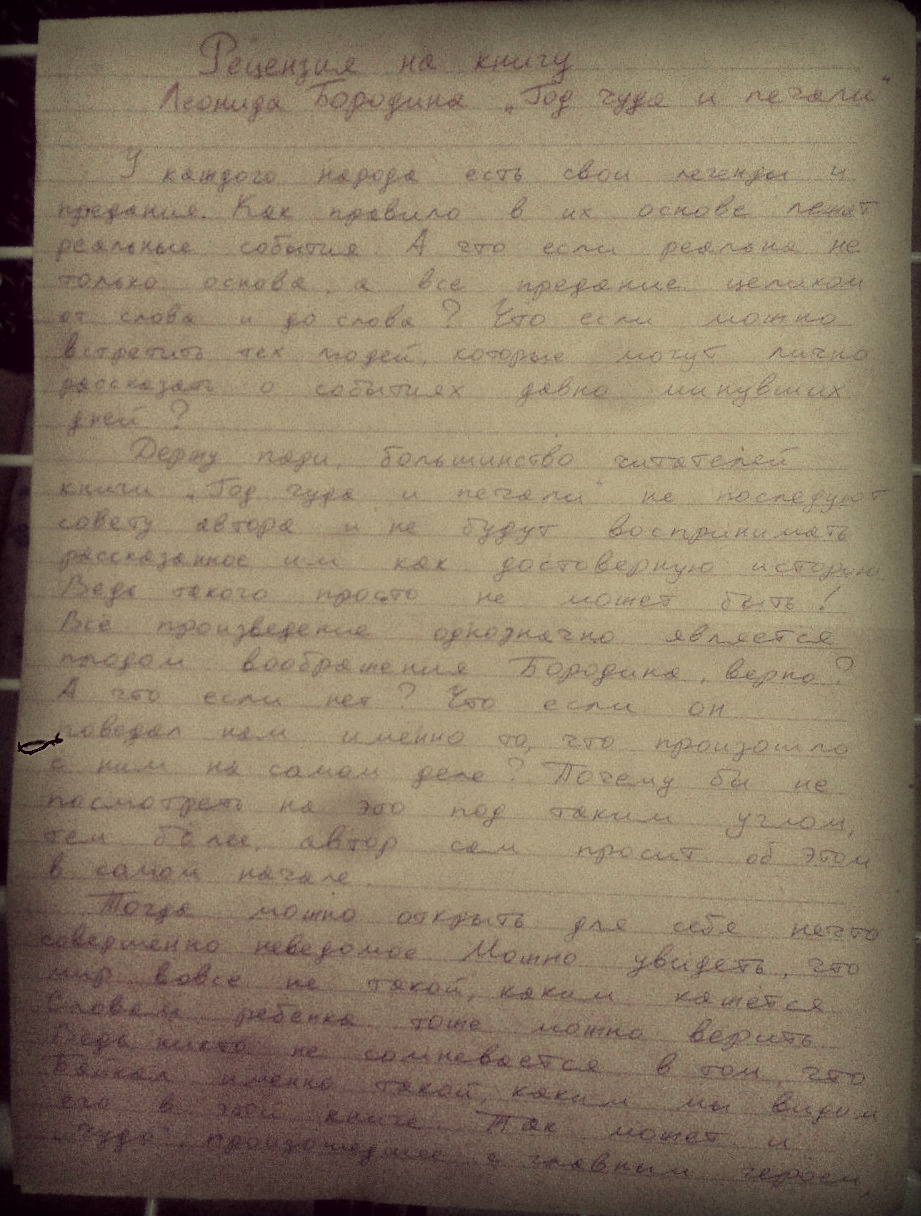 Рецензия на книгу
Леонида Бородина „Год чуда и печали"
У каждого народа есть свои легенды и
предания. Как правило в их основе лежат
реальные события. А что если реальна не
только основа, а все предание целиком
от слова и до слова? Что если можно
встретить тех людей, которые могут лично
рассказать о событиях давно минувших
дней?
Держу пари, большинство читателей
книги „Год чуда и печали" не последуют
совету автора и не будут воспринимать
рассказанное им как достоверную историю
Ведь такого просто не может быть!
Всё произведение однозначно является
плодом воображения Бородина, верно?
А что если нет? Что если он
поведал нам именно то, что произошло
с ним на самом деле? Почему бы не
посмотреть на это под таким углом,
тем более, автор сам просит об этом
в самом начале.
Тогда можно открыть для себя нечто
совершенно неведомое Можно увидеть, что
мир вовсе не такой, каким кажется
Словам ребенка тоже можно верить.
Ведь никто не сомневается в том, что
Байкал именно такой, каким мы видим
его в этой книге. Так может и
чудо, произошедшее с главным героем,